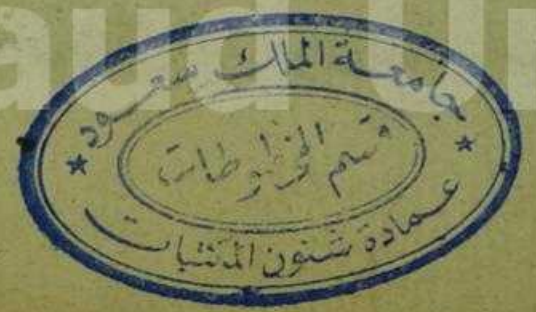 جامعة الملك سعود
قسم المخطوطات
عمادة شئون المكتبات
aud Un